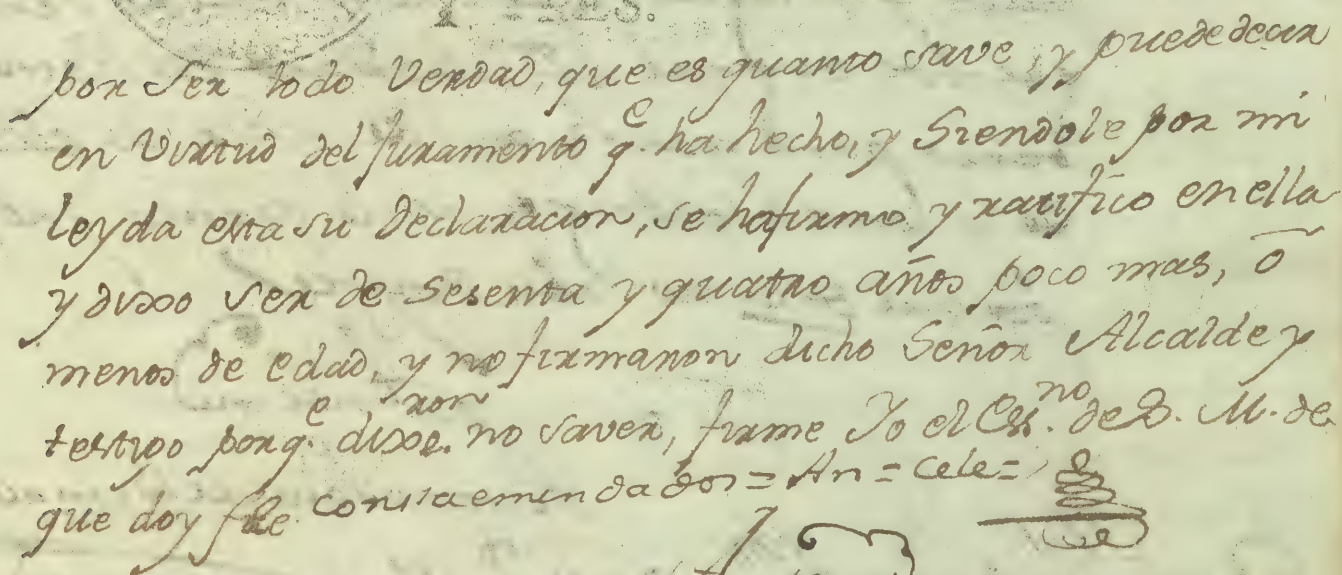 Y TRES.
por ser todo Verdad, que es quanto save, y puede decir
en Virtud del Juramento q.e ha hecho, y Siendole por mi
leyda esta su Declaracion, se hafirmo y ratifico en ella
y dixo ser de Sesenta y quatro años poco mas, ó
menos de edad, y no firmaron dicho Señor Alcalde y
testigo porq.e dixe.ron no saver, firme Yo el Ess.no de S. M. de
que doy fee consta emendados = An = Cele =